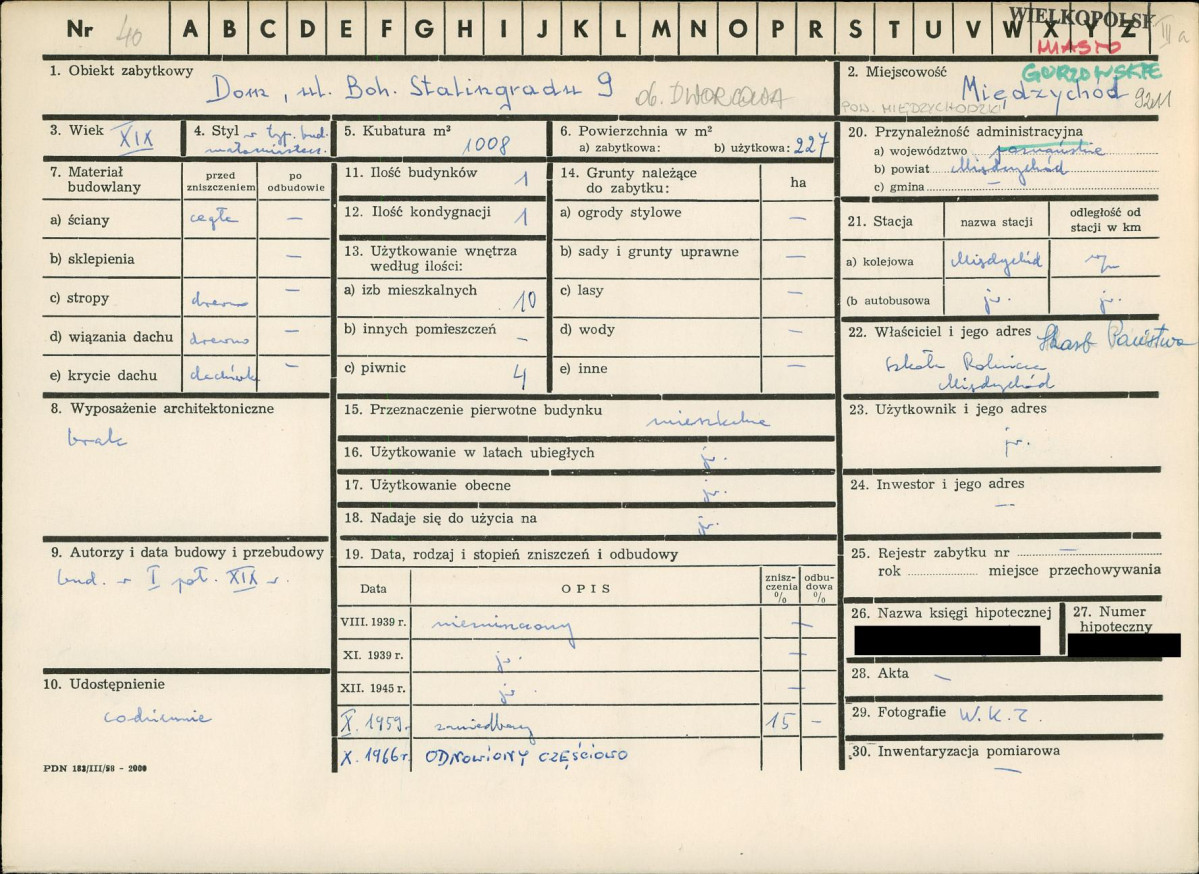 Nr 40 A B C D E F G H I J K L M N O P R S T U V W X Y Z III a
WIELKOPOLSK
MIASTO
GORZOWSKIE
1. Obiekt zabytkowy Dom, ul. Boh. Stalingradu 9 ob. DWORCOWA
2. Miejscowość Międzychód
POW. MIĘDZYCHODZKI
3. Wiek XIX
4. Styl w typ. bud. małomiasteczk.
5. Kubatura m³ 1008
6. Powierzchnia w m²
a) zabytkowa: b) użytkowa: 227
7. Materiał budowlany przed zniszczeniem po odbudowie
a) ściany cegła —
b) sklepienia —
c) stropy drewno —
d) wiązania dachu drewno —
e) krycie dachu dachówka —
8. Wyposażenie architektoniczne
brak
9. Autorzy i data budowy i przebudowy
bud. w I poł. XIX w.
10. Udostępnienie
codziennie
PDN 183/III/58 - 2000
11. Ilość budynków 1
12. Ilość kondygnacji 1
13. Użytkowanie wnętrza według ilości:
a) izb mieszkalnych 10
b) innych pomieszczeń -
c) piwnic 4
14. Grunty należące do zabytku: ha
a) ogrody stylowe —
b) sady i grunty uprawne —
c) lasy —
d) wody —
e) inne —
15. Przeznaczenie pierwotne budynku mieszkalne
16. Użytkowanie w latach ubiegłych jw.
17. Użytkowanie obecne jw.
18. Nadaje się do użycia na jw.
19. Data, rodzaj i stopień zniszczeń i odbudowy
Data OPIS zniszczenia % odbudowa %
VIII. 1939 r. niezniszczony —
XI. 1939 r. jw. —
XII. 1945 r. jw —
X. 1959 r. zaniedbany 15 -
X. 1966 r. ODNOWIONY CZĘŚCIOWO
20. Przynależność administracyjna
a) województwo poznańskie
b) powiat Międzychód
c) gmina —
21. Stacja nazwa stacji odległość od stacji w km
a) kolejowa Międzychód
(b autobusowa jw. jw.
22. Właściciel i jego adres Skarb Państwa
Szkoła Rolnicza
Międzychód
23. Użytkownik i jego adres
jw.
24. Inwestor i jego adres
—
25. Rejestr zabytku nr —
rok miejsce przechowywania
26. Nazwa księgi hipotecznej
27. Numer hipoteczny
28. Akta -
29. Fotografie W.K.Z.
30. Inwentaryzacja pomiarowa
—